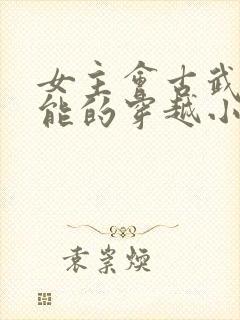 女主会古武
能的穿越小
袁崇焕